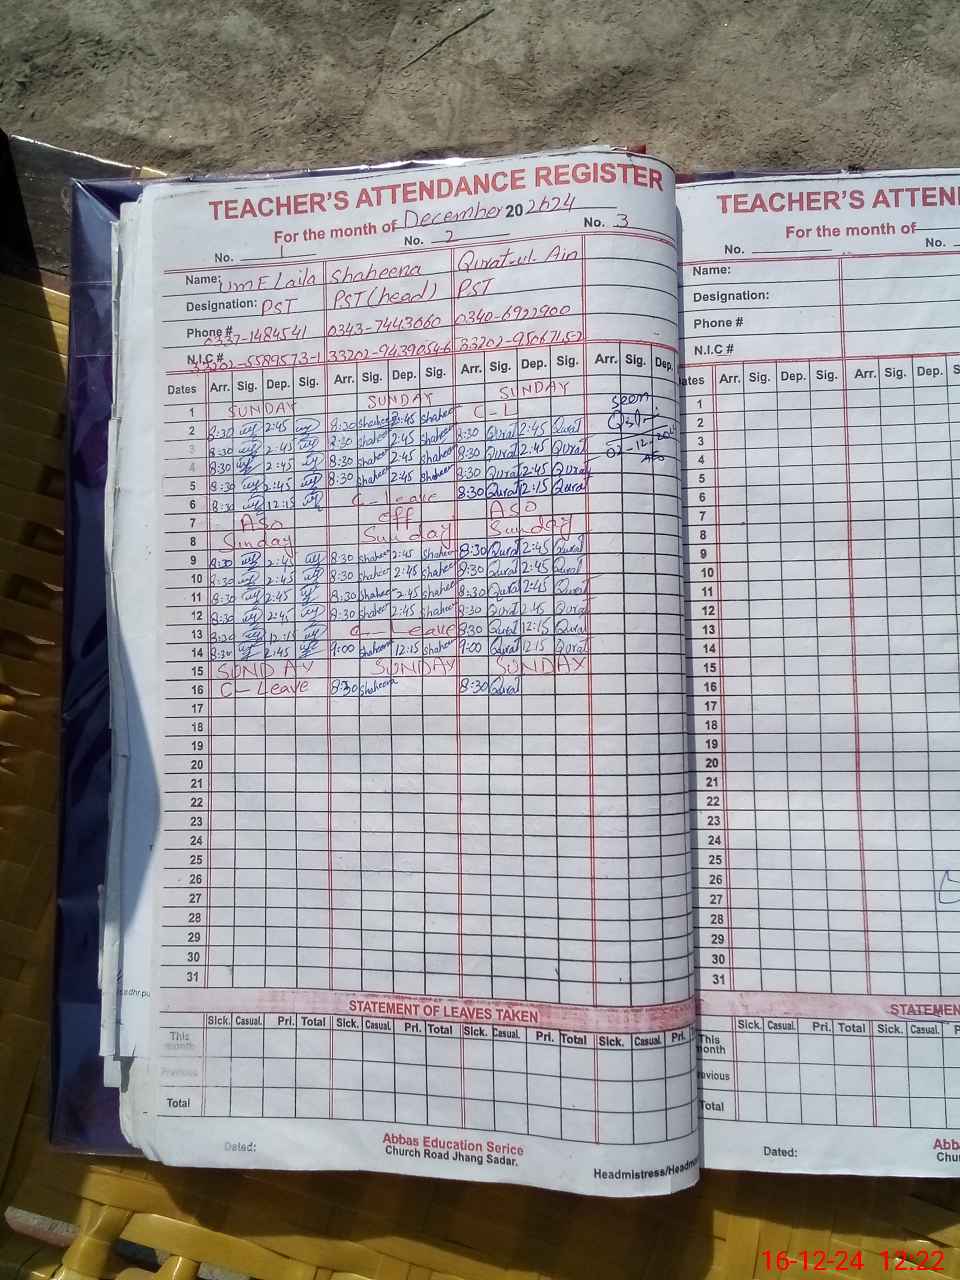 TEACHER'S ATTENDANCE REGISTER
For the month of December 20 2024
No. 1 No. 2 No. 3
Name: Um E Laila Shaheena Qurat-ul-Ain
Designation: PST PST (head) PST
Phone # 0337-1484541 0343-7443060 0340-6922900
N.I.C # 33202-9439054-6
Dates Arr. Sig. Dep. Sig. Arr. Sig. Dep. Sig. Arr. Sig. Dep. Sig. Arr. Sig. Dep.
1 SUNDAY SUNDAY SUNDAY seen
2 8:30 2:45 8:30 Shaheen 2:45 Shaheen C-L
3 8:30 2:45 8:30 Shaheen 2:45 Shaheen 8:30 Qurat 2:45 Qurat 02-12-2024
4 8:30 2:45 8:30 Shaheen 2:45 Shaheen 8:30 Qurat 2:45 Qurat
5 8:30 2:45 8:30 Shaheen 2:45 Shaheen 8:30 Qurat 2:45 Qurat
6 8:30 12:15 C-Leave 8:30 Qurat 12:15 Qurat
7 ASO off ASO
8 Sunday Sunday Sunday
9 8:30 2:45 8:30 Shaheen 2:45 Shaheen 8:30 Qurat 2:45 Qurat
10 8:30 2:45 8:30 Shaheen 2:45 Shaheen 8:30 Qurat 2:45 Qurat
11 8:30 2:45 8:30 Shaheen 2:45 Shaheen 8:30 Qurat 2:45 Qurat
12 8:30 2:45 8:30 Shaheen 2:45 Shaheen 8:30 Qurat 2:45 Qurat
13 8:30 12:15 C-Leave 8:30 Qurat 12:15 Qurat
14 8:30 2:45 9:00 Shaheen 12:15 Shaheen 9:00 Qurat 12:15 Qurat
15 SUNDAY SUNDAY SUNDAY
16 C-Leave 8:30 Shaheena 8:30 Qurat
17
18
19
20
21
22
23
24
25
26
27
28
29
30
31
STATEMENT OF LEAVES TAKEN
Sick. Casual. Pri. Total Sick. Casual. Pri. Total Sick. Casual. Pri. Total Sick. Casual. Pri.
This month
Previous
Total
Dated:
Abbas Education Serice
Church Road Jhang Sadar.
Headmistress/Headm
TEACHER'S ATTEN
For the month of
No. No.
Name:
Designation:
Phone #
N.I.C #
ates Arr. Sig. Dep. Sig. Arr. Sig. Dep. S
1
2
3
4
5
6
7
8
9
10
11
12
13
14
15
16
17
18
19
20
21
22
23
24
25
26
27
28
29
30
31
STATEMEN
Sick. Casual. Pri. Total Sick. Casual.
This month
evious
Total
Dated:
Abb
Chu
16-12-24 12:22